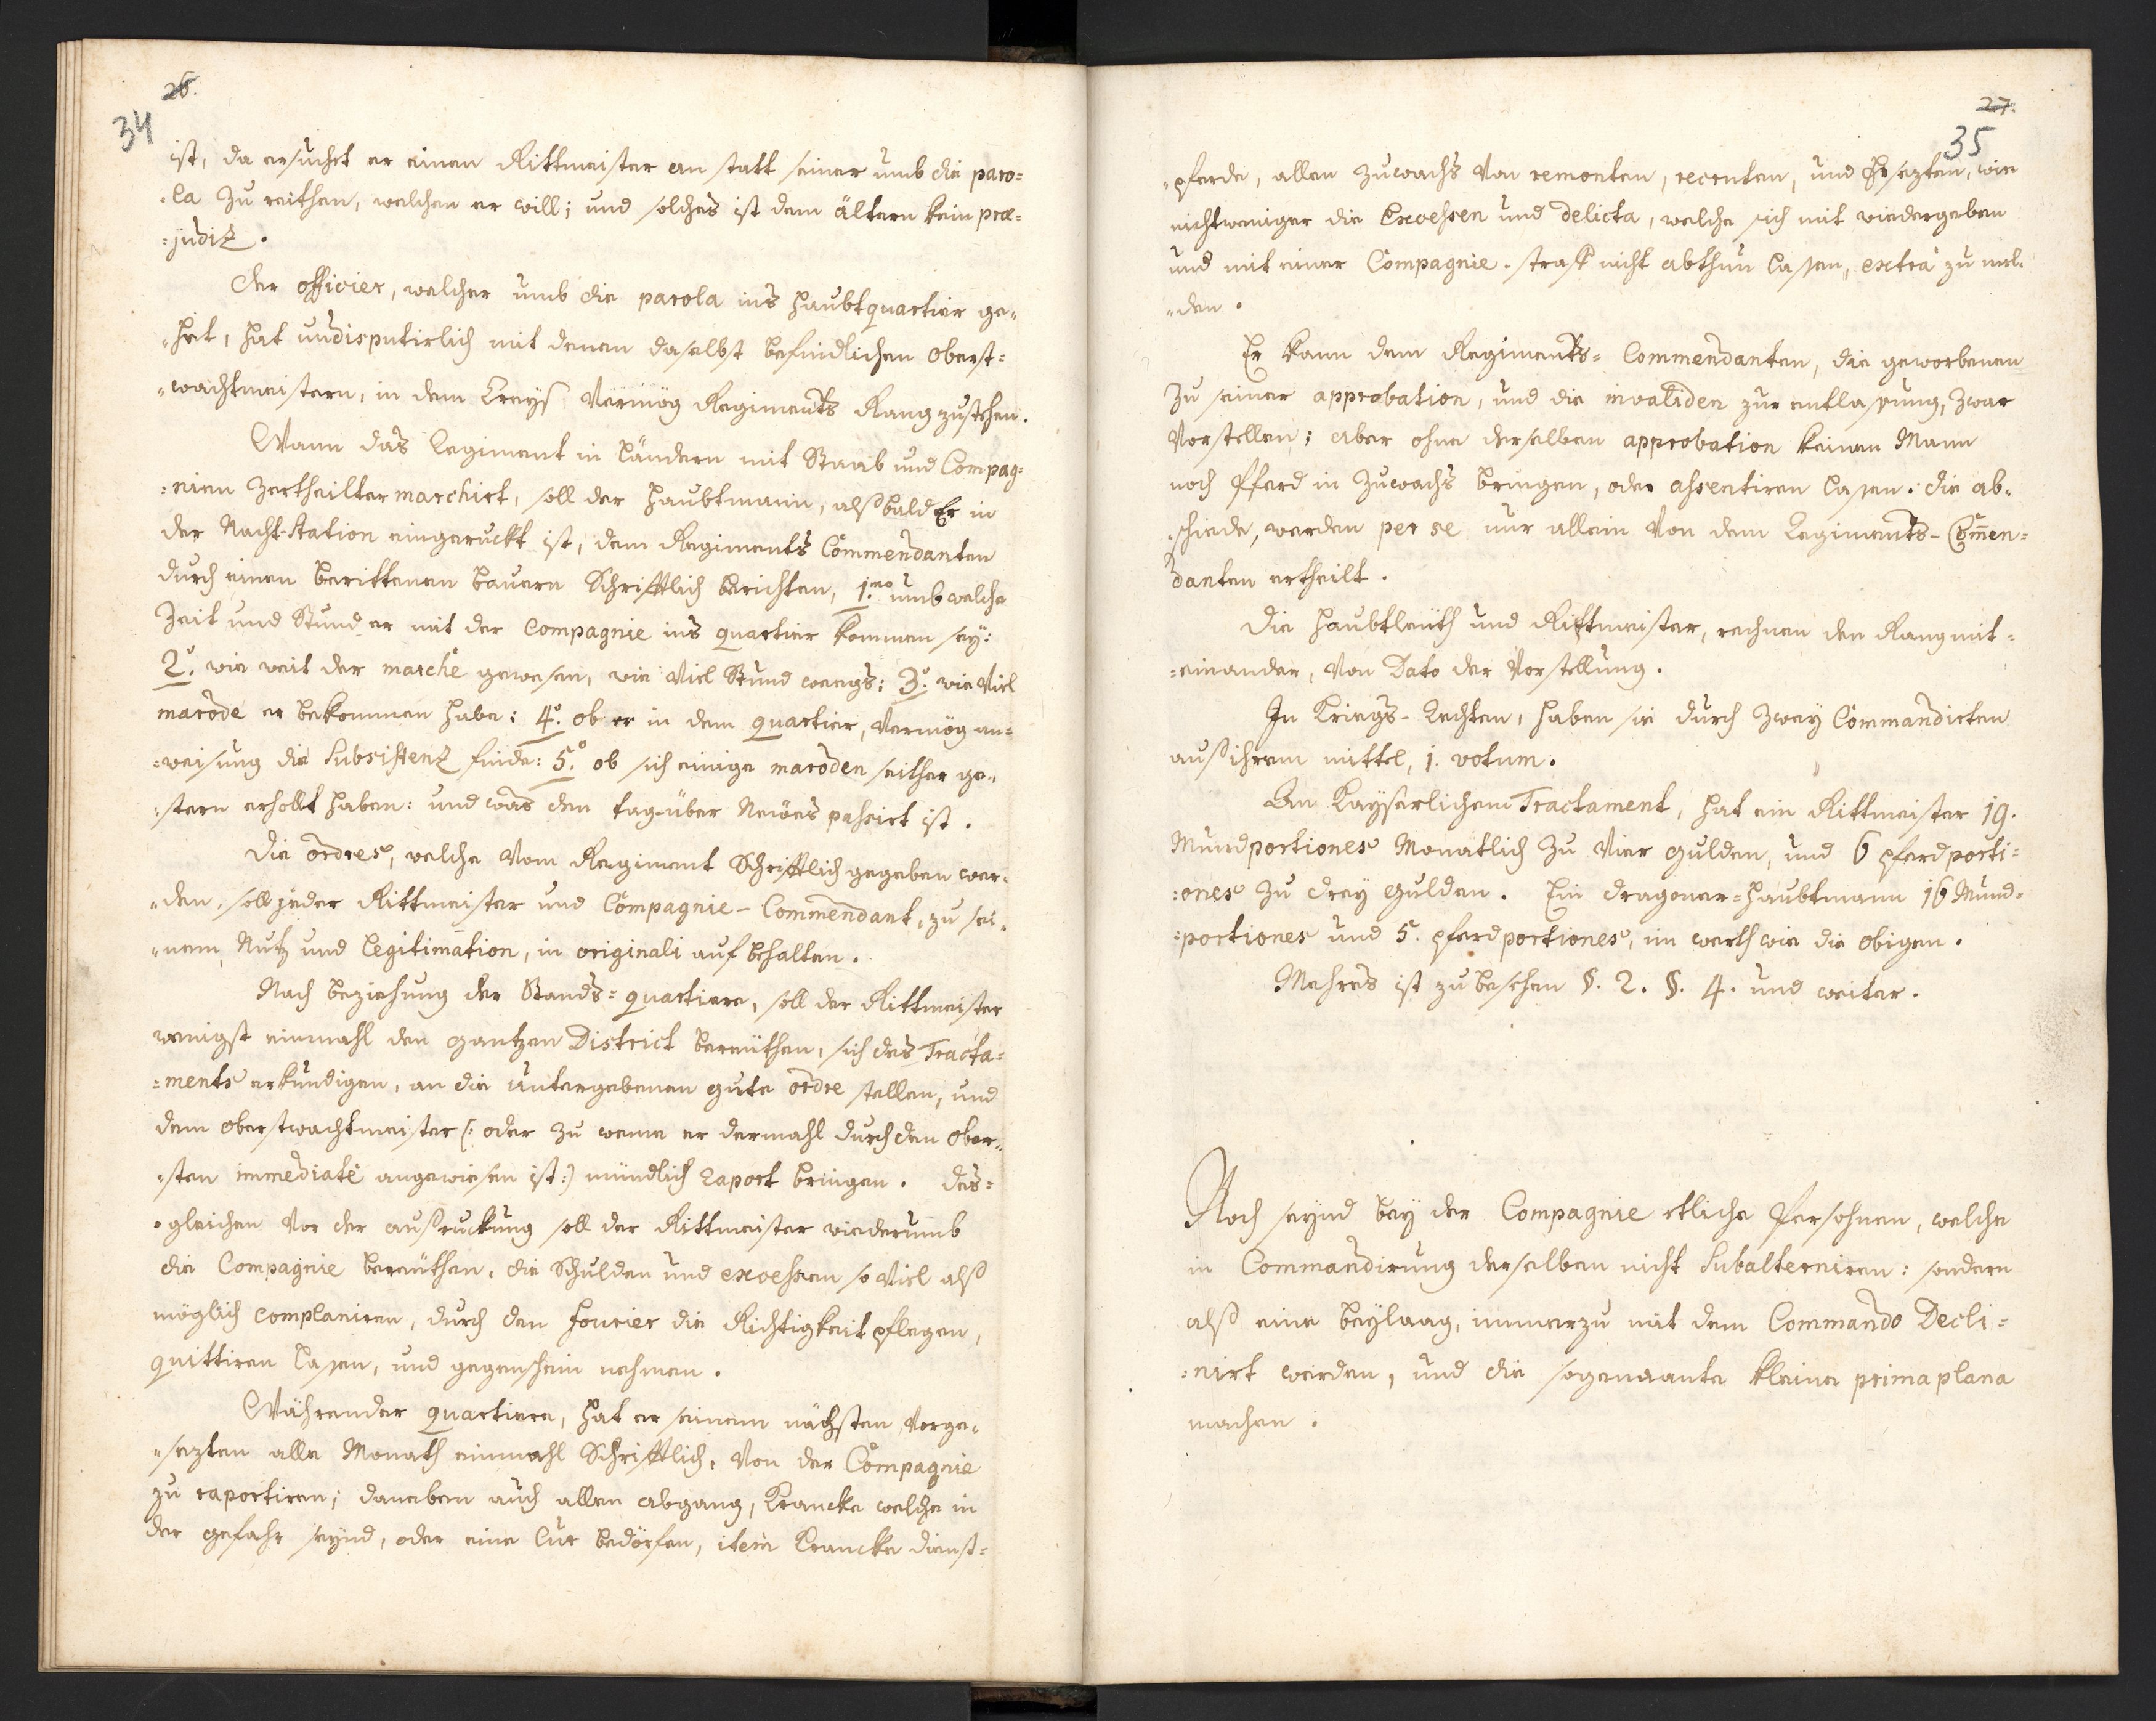 26.
34
ist, da ersucht er einen Rittmeister an statt seiner umb die paro=
=la zu reithen, welchen er will; und solches ist dem ältern kein præ=
=judiz.
Der officier, welcher umb die parola ins Haubtquartier ge=
=het, hat undisputirlich mit denen daselbst befindlichen Oberst=
=wachtmeistern, in dem Creyß vermög Regiments Rang zustehen.
Wann das Regiment in Ländern mit Staab und Compag=
=nien zertheilter marchirt, soll der Haubtmann, alßbald Er in
der Nacht-Station eingeruckt ist, dem Regiments Commendanten
durch einen berittenen bauern Schrifftlich berichten, 1.mo umb welche
Zeit und Stund er mit der Compagnie ins quartier kommen sey:
2.o wie weit der marche gewesen, wie viel Stund weegs: 3.o wie viel
marode er bekommen habe: 4.o ob er in dem quartier, vermög an=
=weisung die Subsistenz finde: 5.o ob sich einige maroden seither ge=
=stern erhollt haben: und was den tag-über Neües passirt ist.
Die ordres, welche vom Regiment Schrifftlich gegeben wer=
=den, soll jeder Rittmeister und Compagnie-Commendant, zu sei=
=nem Nutz und Legitimation, in originali aufbehalten.
Nach beziehung der Stands=quartiere, soll der Rittmeister
wenigst einmahl den gantzen District bereüthen, sich des Tracta=
=ments erkundigen, an die Untergebenen gute ordre stellen, und
dem Oberstwachtmeister (: oder zu weme er dermahl durch den Ober=
=sten immediatè angewiesen ist:) mündlich raport bringen. Des=
=gleichen vor der außruckung soll der Rittmeister wiederumb
die Compagnie bereüthen, die Schulden und excessen so viel alß
möglich complaniren, durch den Fourier die Richtigkeit pflegen,
quittiren lassen, und gegenschein nehmen.
Währender quartiere, hat er seinem nächsten Vorge=
=sezten alle Monath einmahl Schrifftlich, von der Compagnie
zu raportiren; daneben auch allen abgang, Krancke welche in
der gefahr seynd, oder eine Cur bedörfen, item Krancke dienst=
27.
35
=pferde, allen zuwachs von remonten, recruten, und Ersezten, wie
nichtweniger die Excessen und delicta, welche sich mit wiedergeben
und mit einer Compagnie-straff nicht abthun lassen, extra zu mel=
=den.
Er kann dem Regiments=Commendanten, die geworbenen
zu seiner approbation, und die invaliden zur entlassung, zwar
vorstellen; aber ohne derselben approbation keinen Mann
noch Pferd in zuwachs bringen, oder assentiren lassen: die ab=
=schiede, werden per se nur allein von dem Regiments-Commen=
danten ertheilt.
Die Haubtleüth und Rittmeister, rechnen den Rang mit=
=einander, von Dato der Vorstellung.
In Kriegs-Rechten, haben sie durch zwey Commandirten
auß ihrem mittel, 1. votum.
An Kayserlichem Tractament, hat ein Rittmeister 19.
Mundportiones Monatlich zu vier gulden, und 6 pferdporti=
=ones zu drey gulden. Ein dragoner=Haubtmann 16 Mund=
=portiones und 5. pferdportiones, im werth wie die obigen.
Mehres ist zu besehen §. 2. §. 4. und weiter.
Noch seynd bey der Compagnie etliche Persohnen, welche
in Commandirung derselben nicht Subalterniren: sondern
alß eine beylaag, immerzu mit dem Commando Decli=
=nirt werden, und die sogenannte kleine prima plana
machen: